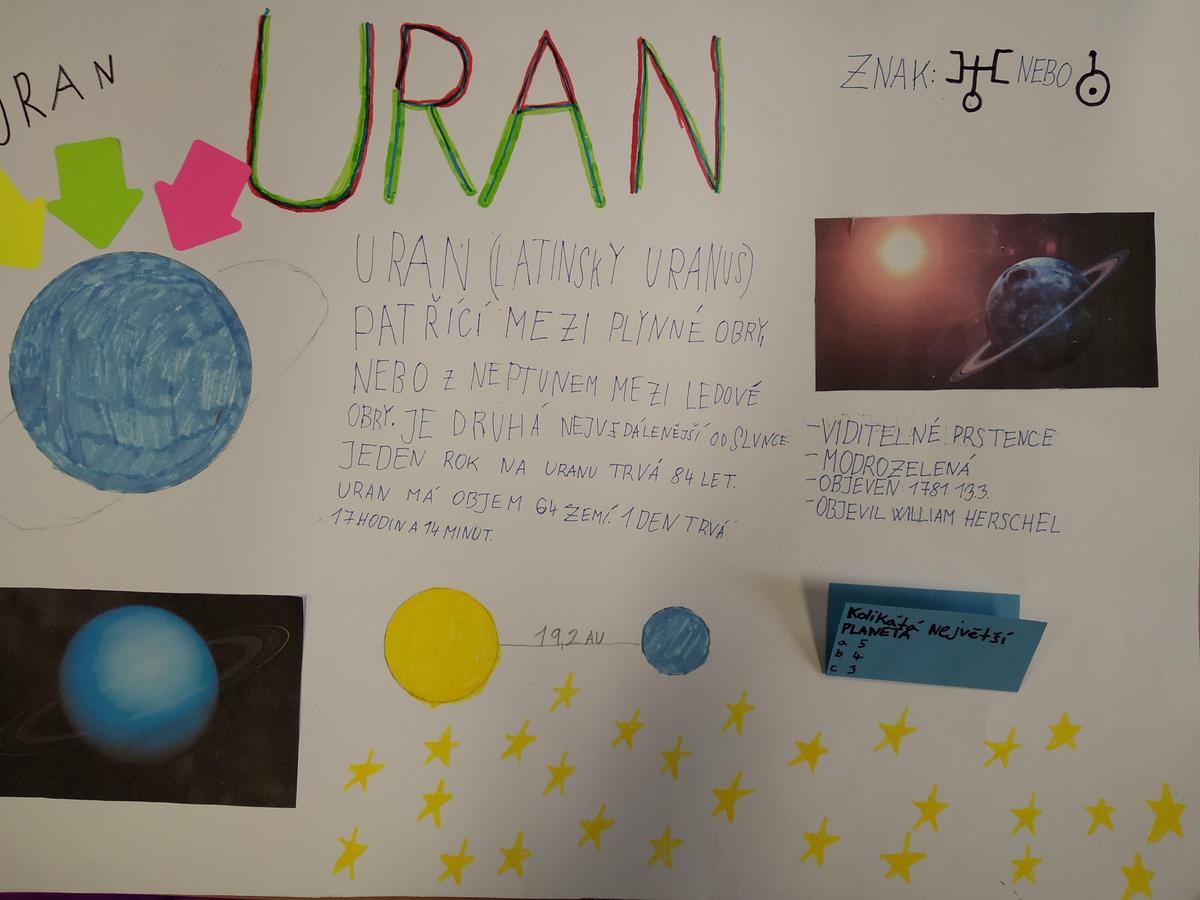 URAN
URAN
ZNAK: NEBO
URAN (LATINSKY URANUS)
PATŘÍCÍ MEZI PLYNNÉ OBRY,
NEBO Z NEPTUNEM MEZI LEDOVÉ
OBRY. JE DRUHÁ NEJVZDÁLENĚJŠÍ OD SLUNCE.
JEDEN ROK NA URANU TRVÁ 84 LET.
URAN MÁ OBJEM 64 ZEMÍ. 1 DEN TRVÁ
17 HODIN A 14 MINUT.
-VIDITELNÉ PRSTENCE
-MODROZELENÁ
-OBJEVEN: 1781 13.3.
-OBJEVIL WILLIAM HERSCHEL
19,2 AU
Kolikátá Největší
PLANETA
a 5
b 4
c 3